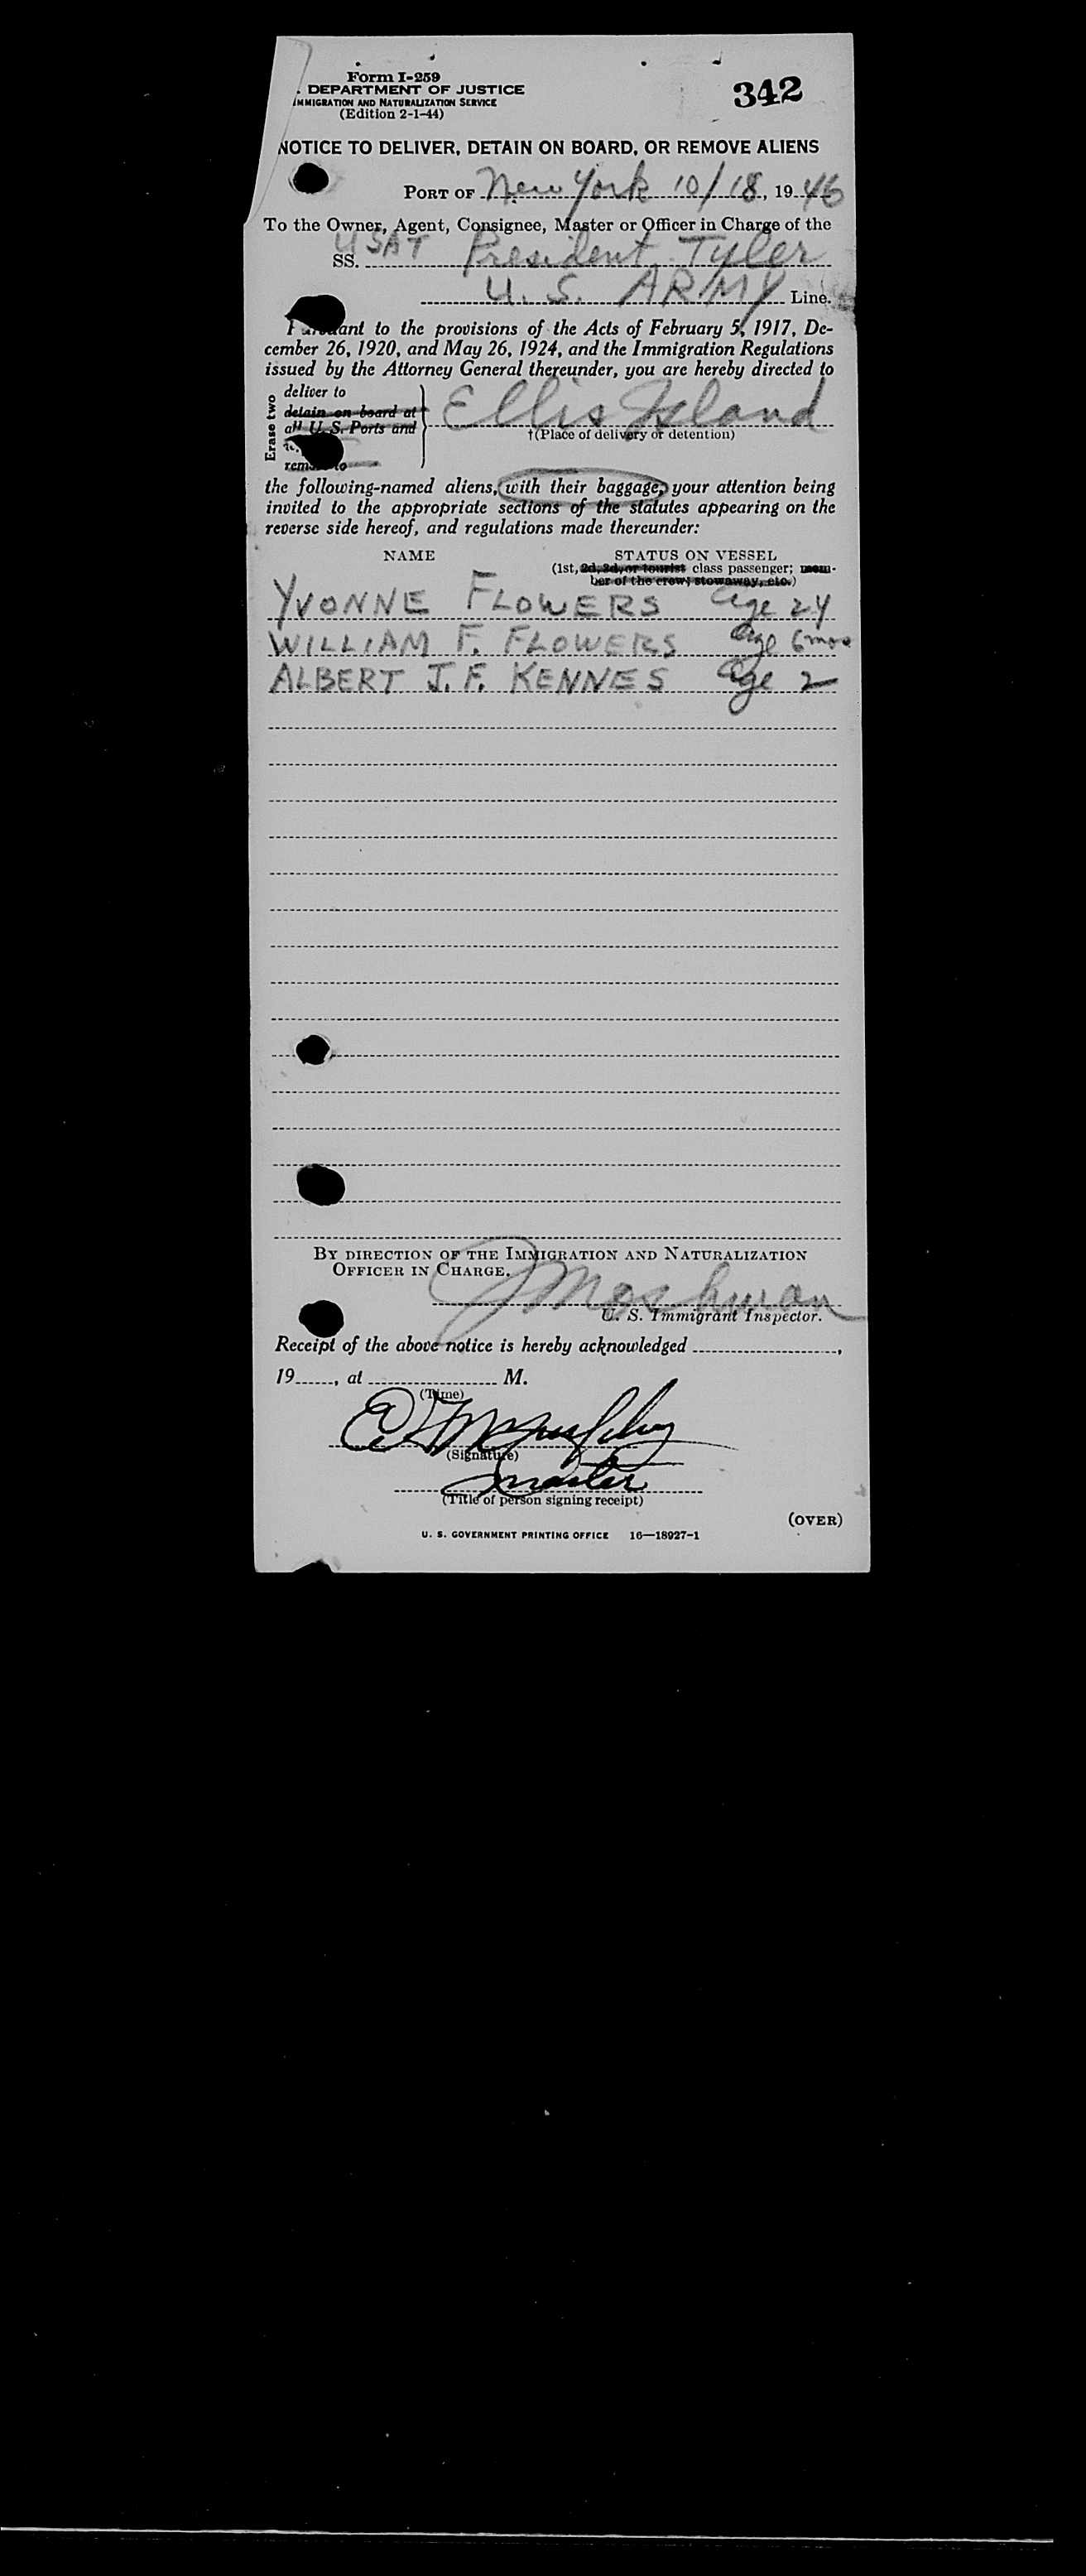 Form I-259
342
. DEPARTMENT OF JUSTICE
IMMIGRATION AND NATURALIZATION SERVICE
(Edition 2-1-44)
NOTICE TO DELIVER, DETAIN ON BOARD, OR REMOVE ALIENS
PORT OF New York 10/18, 1946
To the Owner, Agent, Consignee, Master or Officer in Charge of the
SS. USAT President Tyler
U.S. ARMY Line.
Pursuant to the provisions of the Acts of February 5, 1917, De-
cember 26, 1920, and May 26, 1924, and the Immigration Regulations
issued by the Attorney General thereunder, you are hereby directed to
Erase two
deliver to
detain on board at
all U. S. Ports and
remove to
Ellis Island
†(Place of delivery or detention)
the following-named aliens, with their baggage, your attention being
invited to the appropriate sections of the statutes appearing on the
reverse side hereof, and regulations made thereunder:
NAME STATUS ON VESSEL
(1st, 2d, 3d, or tourist class passenger; mem-
ber of the crew; stowaway, etc.)
YVONNE FLOWERS age 24
WILLIAM F. FLOWERS age 6mos
ALBERT J.F. KENNES age 2
BY DIRECTION OF THE IMMIGRATION AND NATURALIZATION
OFFICER IN CHARGE.
J Moshman
U. S. Immigrant Inspector.
Receipt of the above notice is hereby acknowledged ,
19 , at M.
(Time)
(Signature)
Master
(Title of person signing receipt)
(OVER)
U. S. GOVERNMENT PRINTING OFFICE 16—18927-1